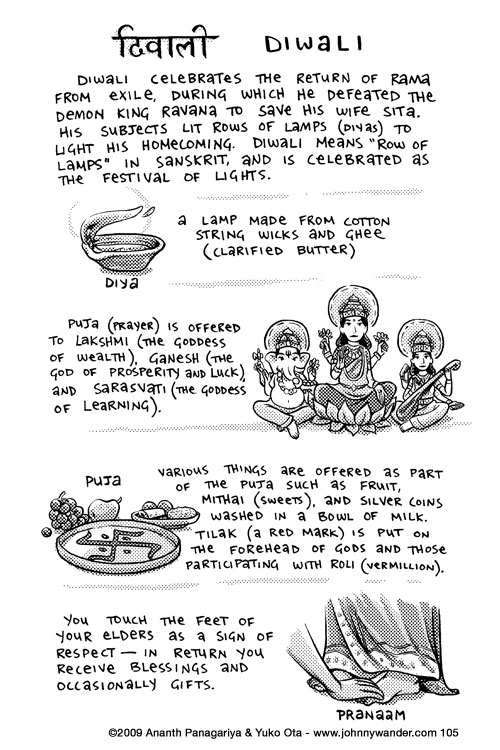 दिवाली DIWALI
DIWALI CELEBRATES THE RETURN OF RAMA
FROM EXILE, DURING WHICH HE DEFEATED THE
DEMON KING RAVANA TO SAVE HIS WIFE SITA.
HIS SUBJECTS LIT ROWS OF LAMPS (DIYAS) TO
LIGHT HIS HOMECOMING. DIWALI MEANS "ROW OF
LAMPS" IN SANSKRIT, AND IS CELEBRATED AS
THE FESTIVAL OF LIGHTS.
A LAMP MADE FROM COTTON
STRING WICKS AND GHEE
(CLARIFIED BUTTER)
DIYA
PUJA (PRAYER) IS OFFERED
TO LAKSHMI (THE GODDESS
OF WEALTH), GANESH (THE
GOD OF PROSPERITY AND LUCK),
AND SARASVATI (THE GODDESS
OF LEARNING).
PUJA
VARIOUS THINGS ARE OFFERED AS PART
OF THE PUJA SUCH AS FRUIT,
MITHAI (SWEETS), AND SILVER COINS
WASHED IN A BOWL OF MILK.
TILAK (A RED MARK) IS PUT ON
THE FOREHEAD OF GODS AND THOSE
PARTICIPATING WITH ROLI (VERMILLION).
YOU TOUCH THE FEET OF
YOUR ELDERS AS A SIGN OF
RESPECT — IN RETURN YOU
RECEIVE BLESSINGS AND
OCCASIONALLY GIFTS.
PRANAAM
©2009 Ananth Panagariya & Yuko Ota - www.johnnywander.com 105